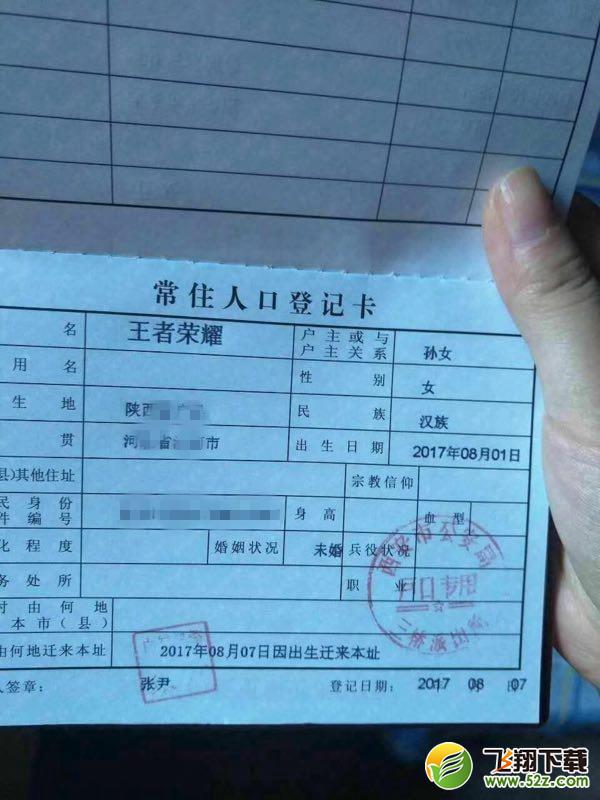 常住人口登记卡
名 王者荣耀 户主或与户主关系 孙女
用名 性别 女
生地 陕西 民族 汉族
贯 河 省 市 出生日期 2017年08月01日
县)其他住址 宗教信仰
民身份
件编号 身高 血型
化程度 婚姻状况 未婚 兵役状况
务处所 职业
时由何地
本市(县)
何地迁来本址 2017年08月07日因出生迁来本址
人签章: 张尹 登记日期: 2017 年 08 月 07
西安市公安局
户口专用
三桥派出所
飞翔下载
www.52z.com